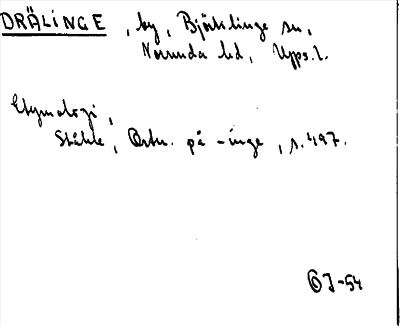 DRÄLINGE, by, Björklinge sn,
Norunda hd, Upps.l.
Etymologi,
Ståhle, Ortn. på -inge, s. 497.
OJ-54